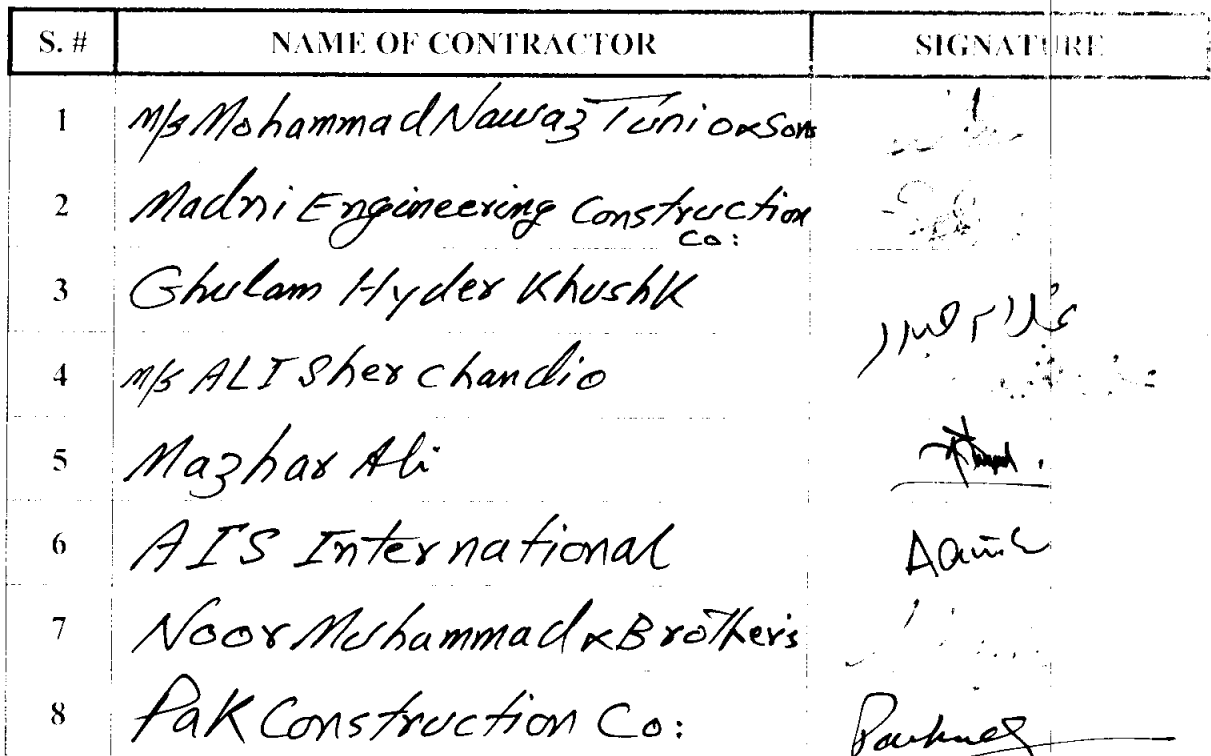 S. # NAME OF CONTRACTOR SIGNATURE
1 M/s Mohammad Nawaz Tunio & Sons
2 Madni Engineering Construction
Co:
3 Ghulam Hyder Khushk غلام حيدر
4 M/s ALI Sher Chandio
5 Mazhar Ali
6 AIS International
7 Noor Muhammad & Brothers
8 Pak Construction Co: